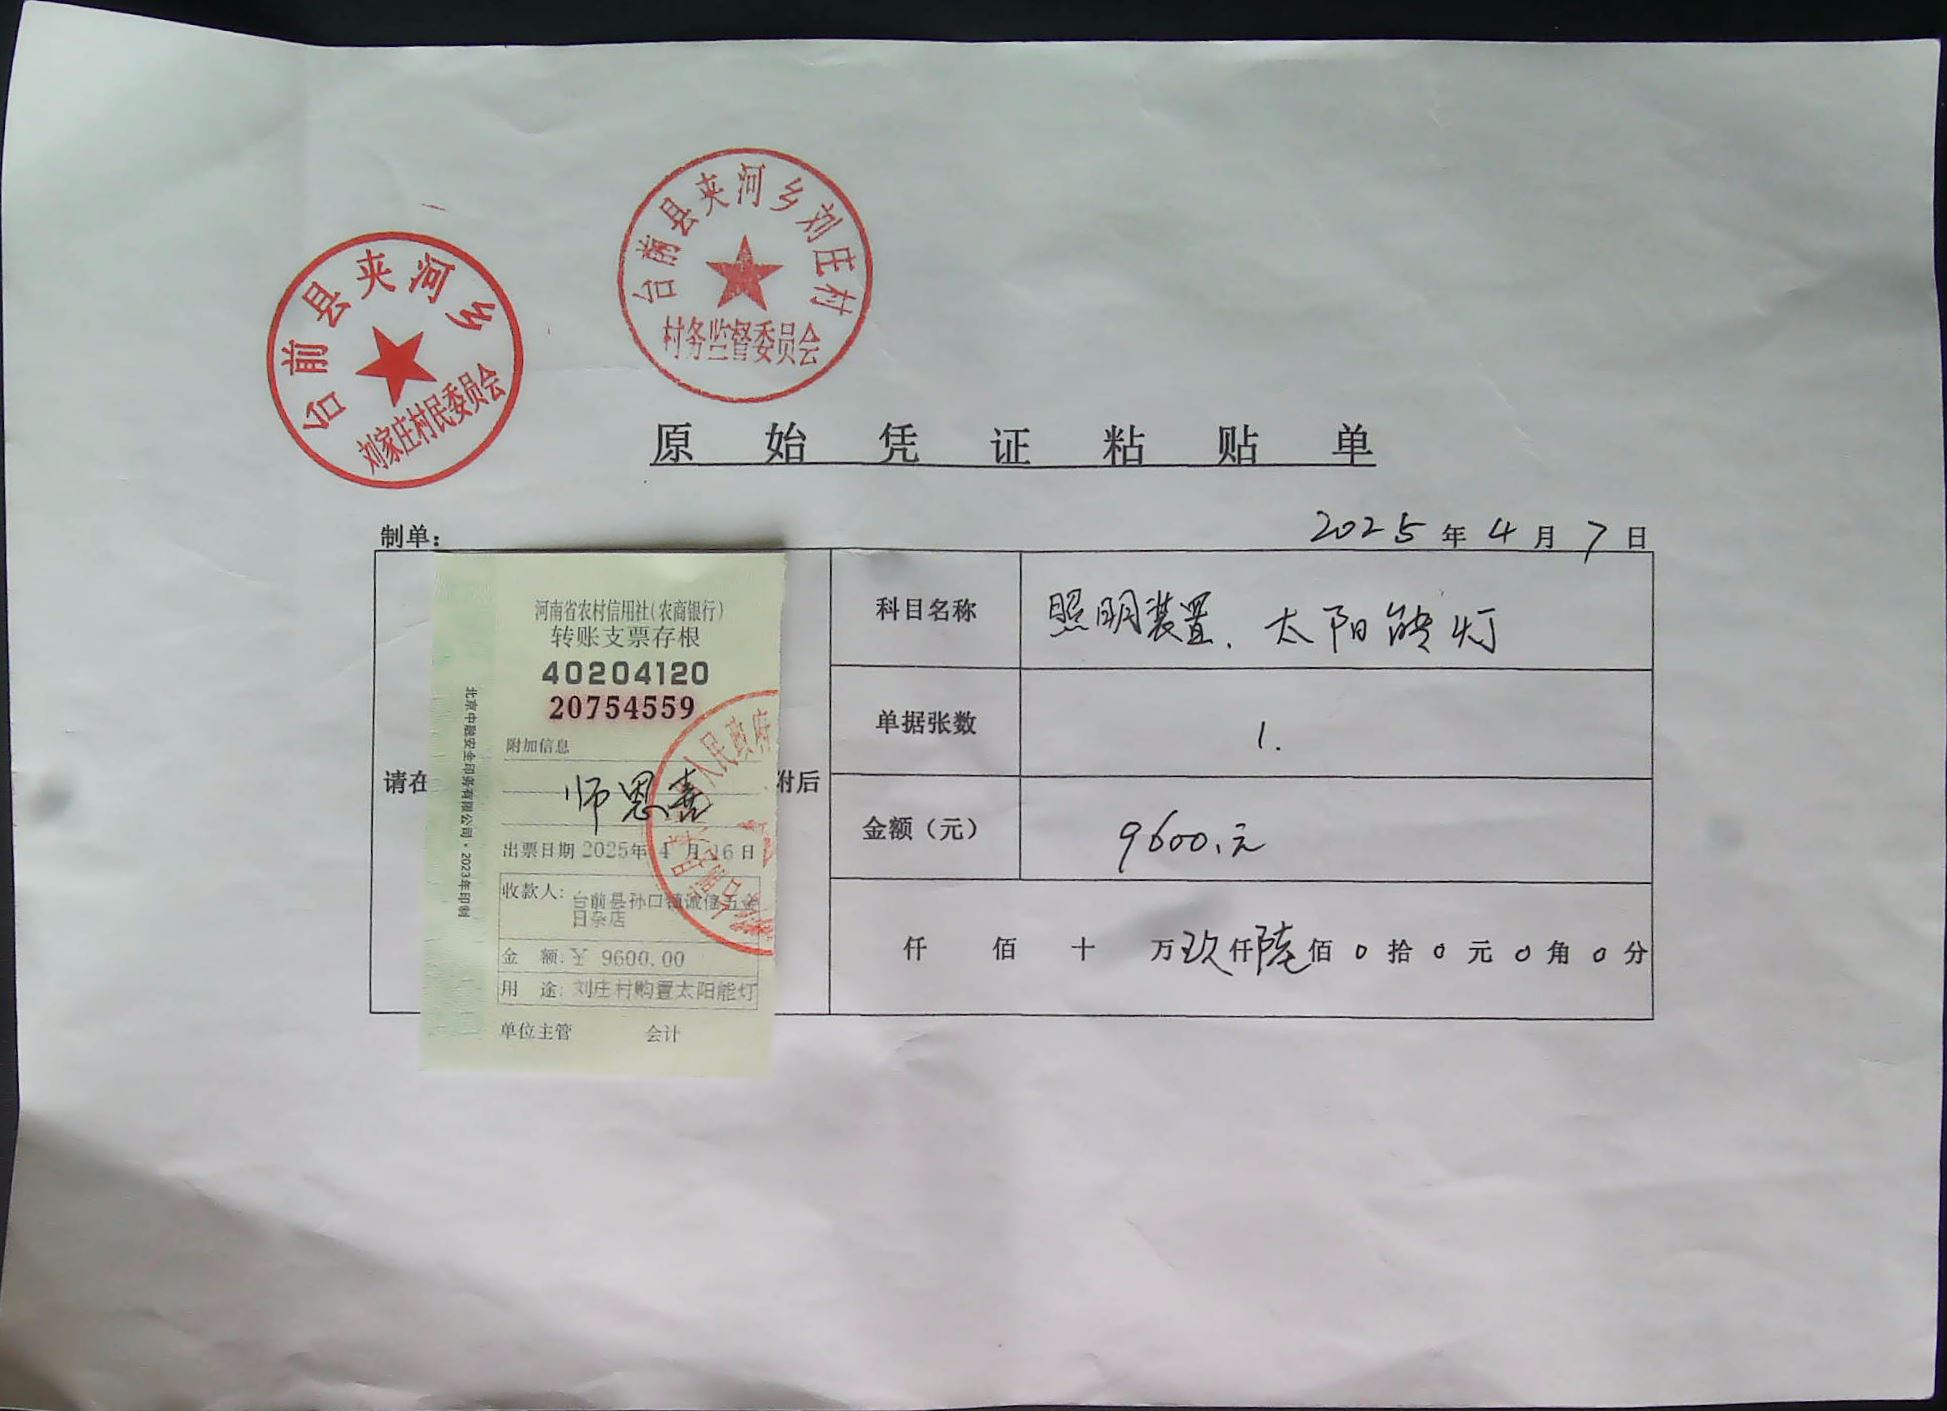 台前县夹河乡刘庄村
村务监督委员会
台前县夹河乡
刘家庄村民委员会
原始凭证粘贴单
制单：
2025年4月7日
请在
附后
河南省农村信用社(农商银行)
转账支票存根
40204120
20754559
附加信息
师恩喜
出票日期 2025年 4 月 16 日
收款人: 台前县孙口镇诚信五金
日杂店
金 额: ¥ 9600.00
用 途: 刘庄村购置太阳能灯
单位主管 会计
北京中融安全印务有限公司·2023年印制
人民政府
科目名称 照明装置、太阳能灯
单据张数 1.
金额（元） 9600.元
仟 佰 十 万玖仟陆佰0拾0元0角0分